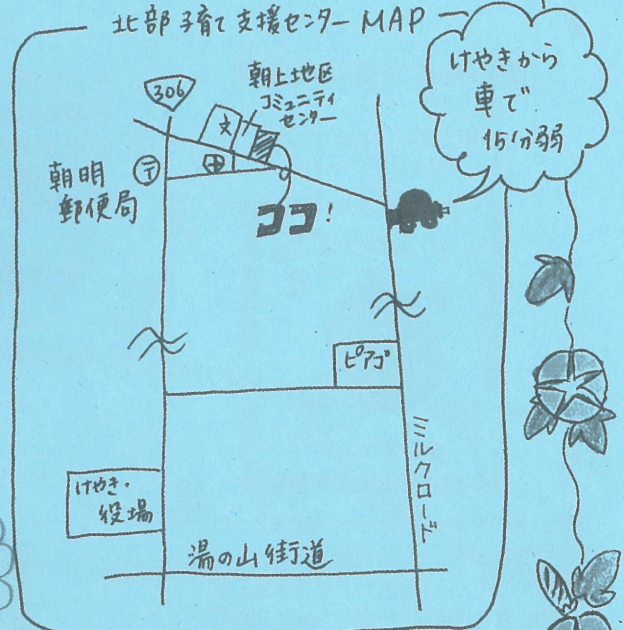 北部子育て支援センターMAP
けやきから
車で
15分弱
306
朝上地区
コミュニティ
センター
文
〒
朝明
郵便局
ココ!
ピアゴ
ミルクロード
けやき・
役場
湯の山街道